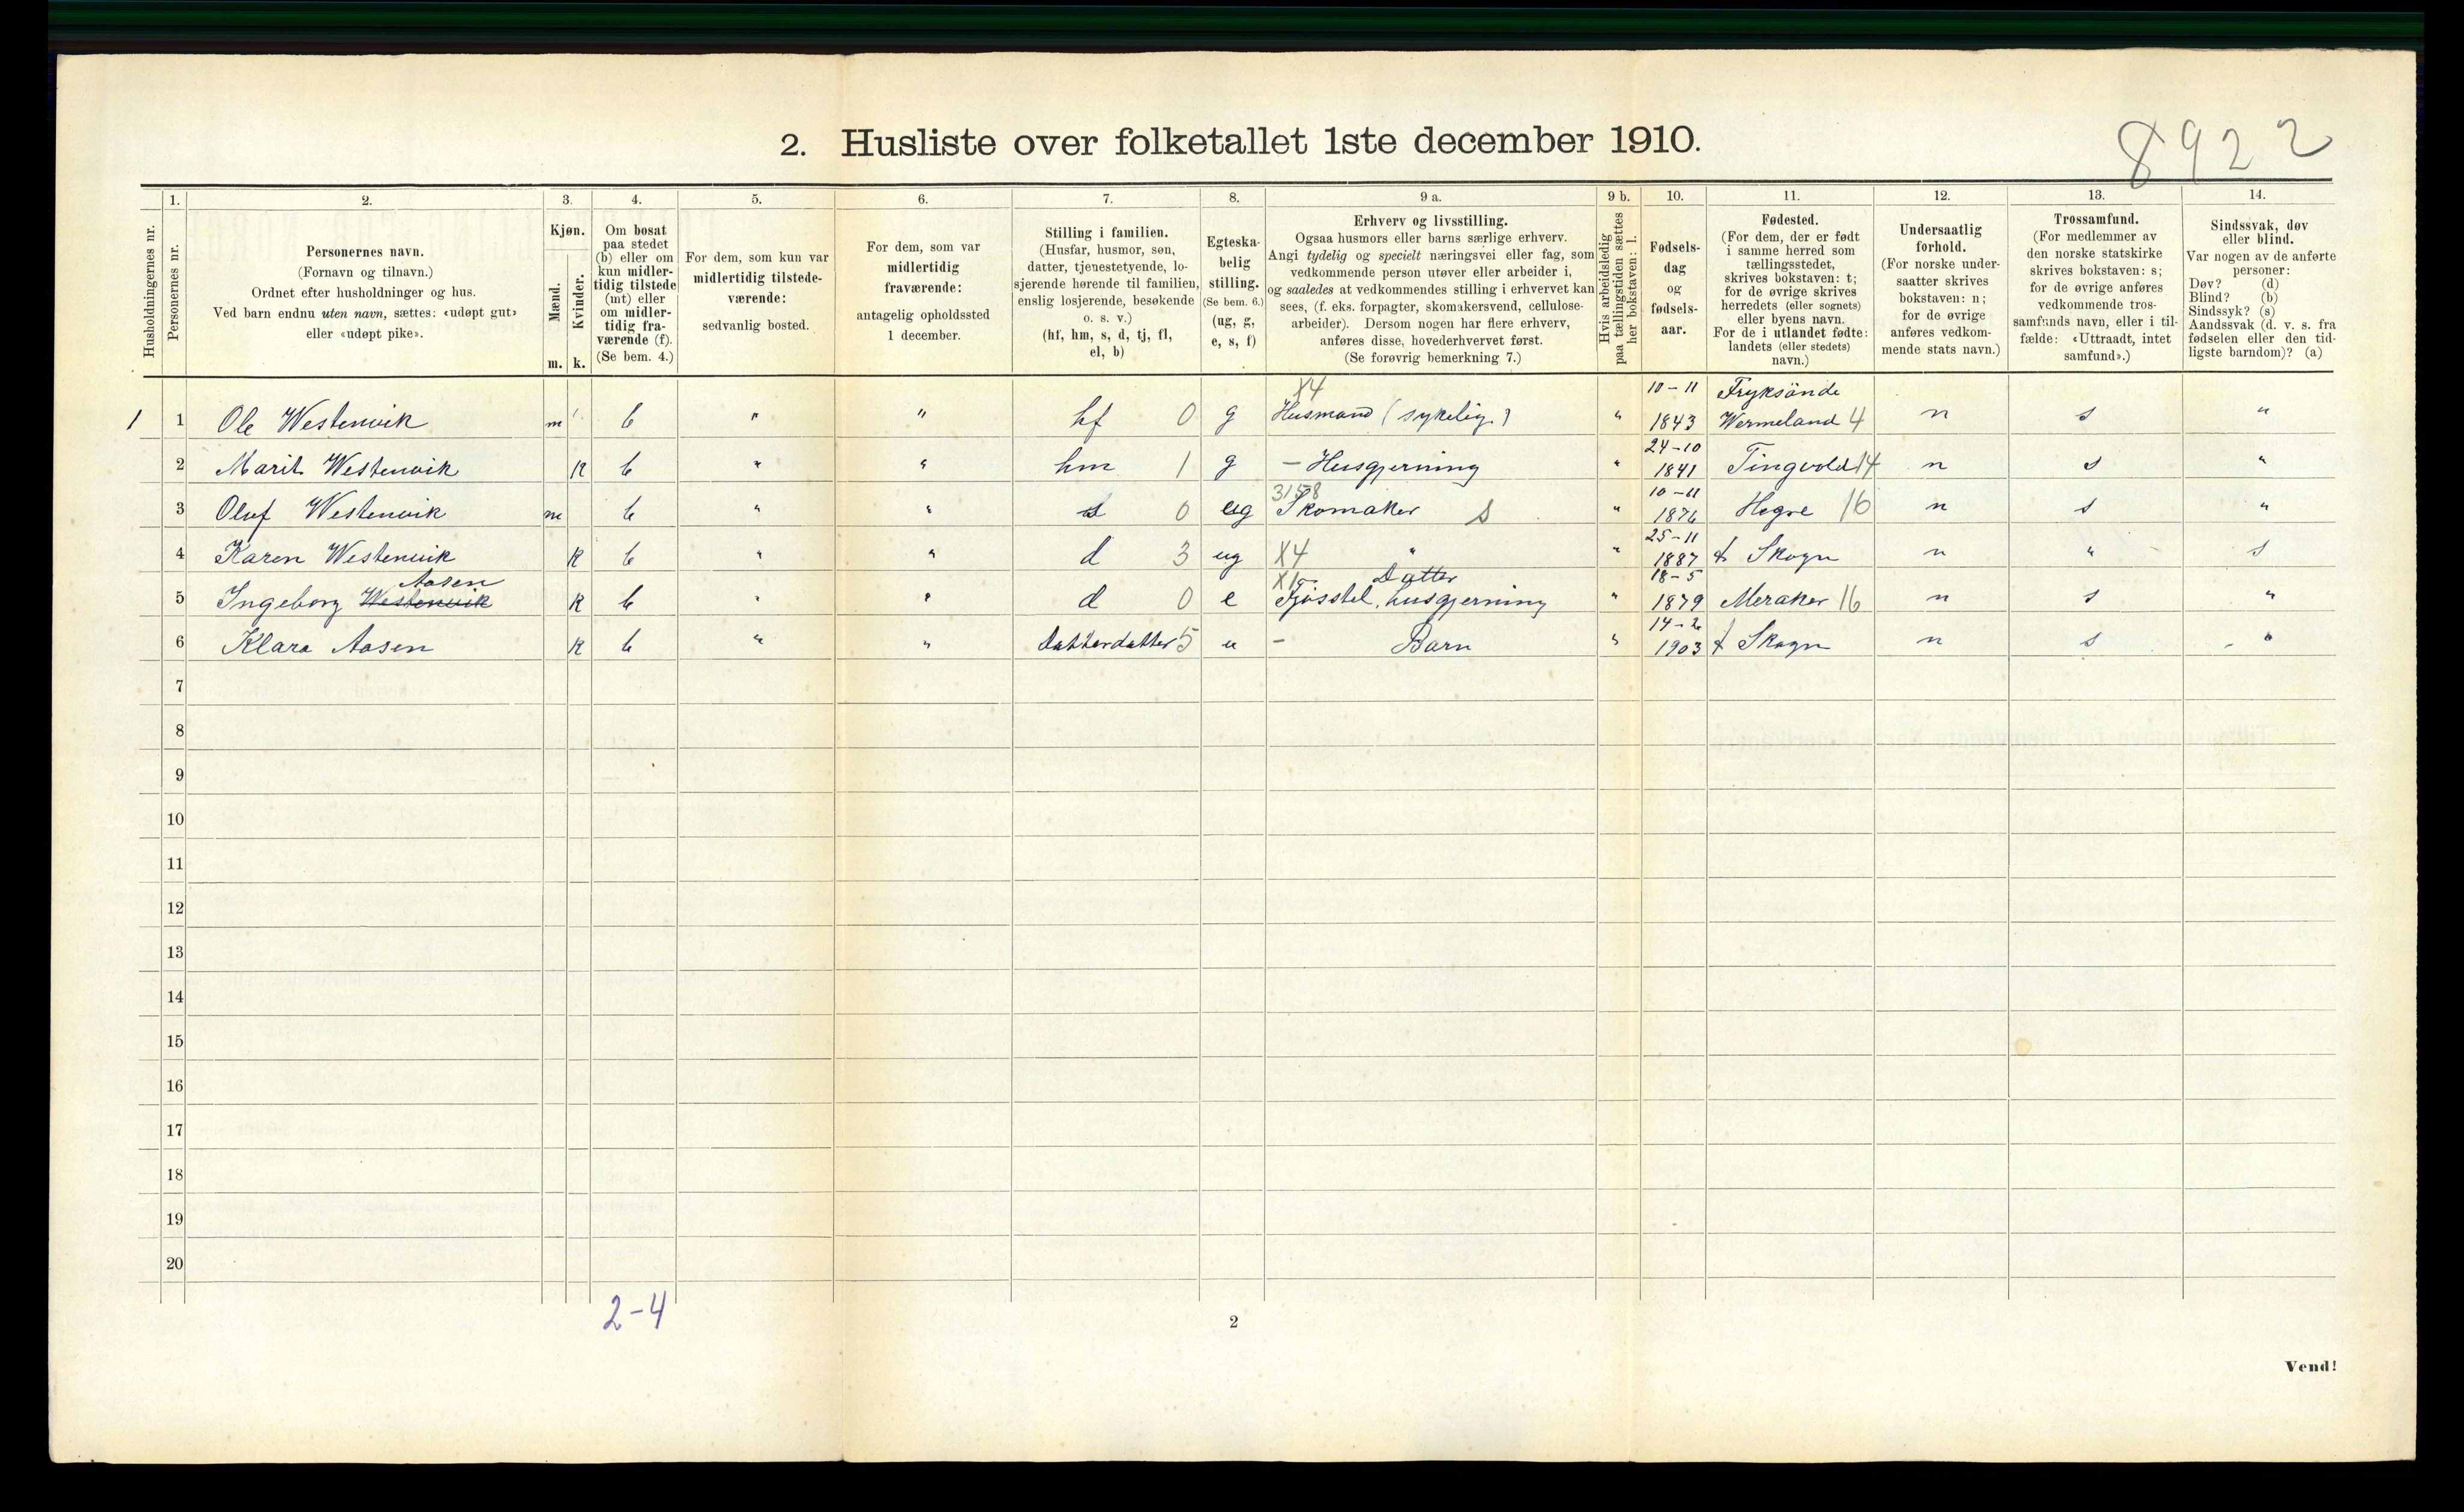 8922
2. Husliste over folketallet 1ste december 1910.
1. 2. 3. 4. 5. 6. 7. 8. 9 a. 9 b. 10. 11. 12. 13. 14.
Husholdningernes nr.
Personernes nr.
Personernes navn.
(Fornavn og tilnavn.)
Ordnet efter husholdninger og hus.
Ved barn endnu uten navn, sættes: «udøpt gut»
eller «udøpt pike».
Kjøn.
Mænd.
Kvinder.
m. k.
Om bosat
paa stedet
(b) eller om
kun midler-
tidig tilstede
(mt) eller
om midler-
tidig fra-
værende (f).
(Se bem. 4.)
For dem, som kun var
midlertidig tilstede-
værende:
sedvanlig bosted.
For dem, som var
midlertidig
fraværende:
antagelig opholdssted
1 december.
Stilling i familien.
(Husfar, husmor, søn,
datter, tjenestetyende, lo-
sjerende hørende til familien,
enslig losjerende, besøkende
o. s. v.)
(hf, hm, s, d, tj, fl,
el, b)
Egteska-
belig
stilling.
(Se bem. 6.)
(ug, g,
e, s, f)
Erhverv og livsstilling.
Ogsaa husmors eller barns særlige erhverv.
Angi tydelig og specielt næringsvei eller fag, som
vedkommende person utøver eller arbeider i,
og saaledes at vedkommendes stilling i erhvervet kan
sees, (f. eks. forpagter, skomakersvend, cellulose-
arbeider). Dersom nogen har flere erhverv,
anføres disse, hovederhvervet først.
(Se forøvrig bemerkning 7.)
Hvis arbeidsledig
paa tællingstiden sættes
her bokstaven: l.
Fødsels-
dag
og
fødsels-
aar.
Fødested.
(For dem, der er født
i samme herred som
tællingsstedet,
skrives bokstaven: t;
for de øvrige skrives
herredets (eller sognets)
eller byens navn.
For de i utlandet fødte:
landets (eller stedets)
navn.)
Undersaatlig
forhold.
(For norske under-
saatter skrives
bokstaven: n;
for de øvrige
anføres vedkom-
mende stats navn.)
Trossamfund.
(For medlemmer av
den norske statskirke
skrives bokstaven: s;
for de øvrige anføres
vedkommende tros-
samfunds navn, eller i til-
fælde: «Uttraadt, intet
samfund».)
Sindssvak, døv
eller blind.
Var nogen av de anførte
personer:
Døv? (d)
Blind? (b)
Sindssyk? (s)
Aandssvak (d. v. s. fra
fødselen eller den tid-
ligste barndom)? (a)
X4 10-11 Fryksände
1 1 Ole Westenvik m b " " hf 0 g Husmand (sykelig) " 1843 Wermeland 4 n s "
24-10
2 Marit Westenvik k b " " hm 1 g - Husgjerning " 1841 Tingvold 14 n s "
3158 10-11
3 Oluf Westenvik m b " " s 0 ug Skomaker s " 1876 Hegre 16 n s "
25-11
4 Karen Westenvik k b " " d 3 ug X4 " " 1887 t Skogn n " s
Aasen X1 Datter 18-5
5 Ingeborg Westenvik k b " " d 0 e Fjøsstel, husgjerning " 1879 Meraker 16 n s "
14-2
6 Klara Aasen k b " " datterdatter 5 u - Barn " 1903 t Skogn n s - "
7
8
9
10
11
12
13
14
15
16
17
18
19
20
2-4
2
Vend!